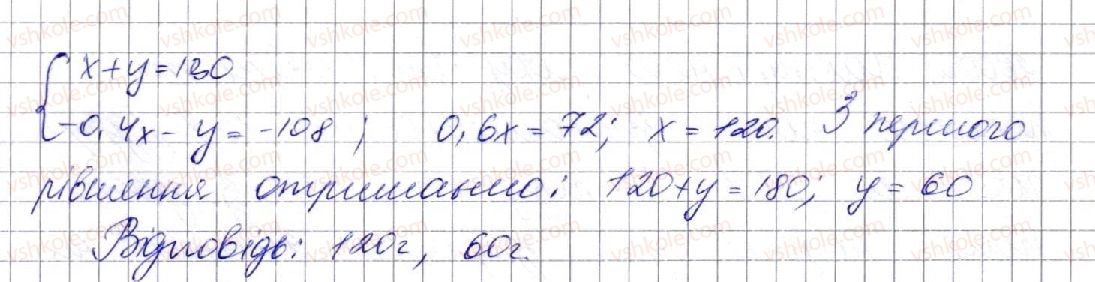 { x + y = 180
{ -0,4x - y = -108 ; 0,6x = 72; x = 120. З першого
рівняння отримаємо: 120 + y = 180; y = 60
Відповідь: 120г, 60г.